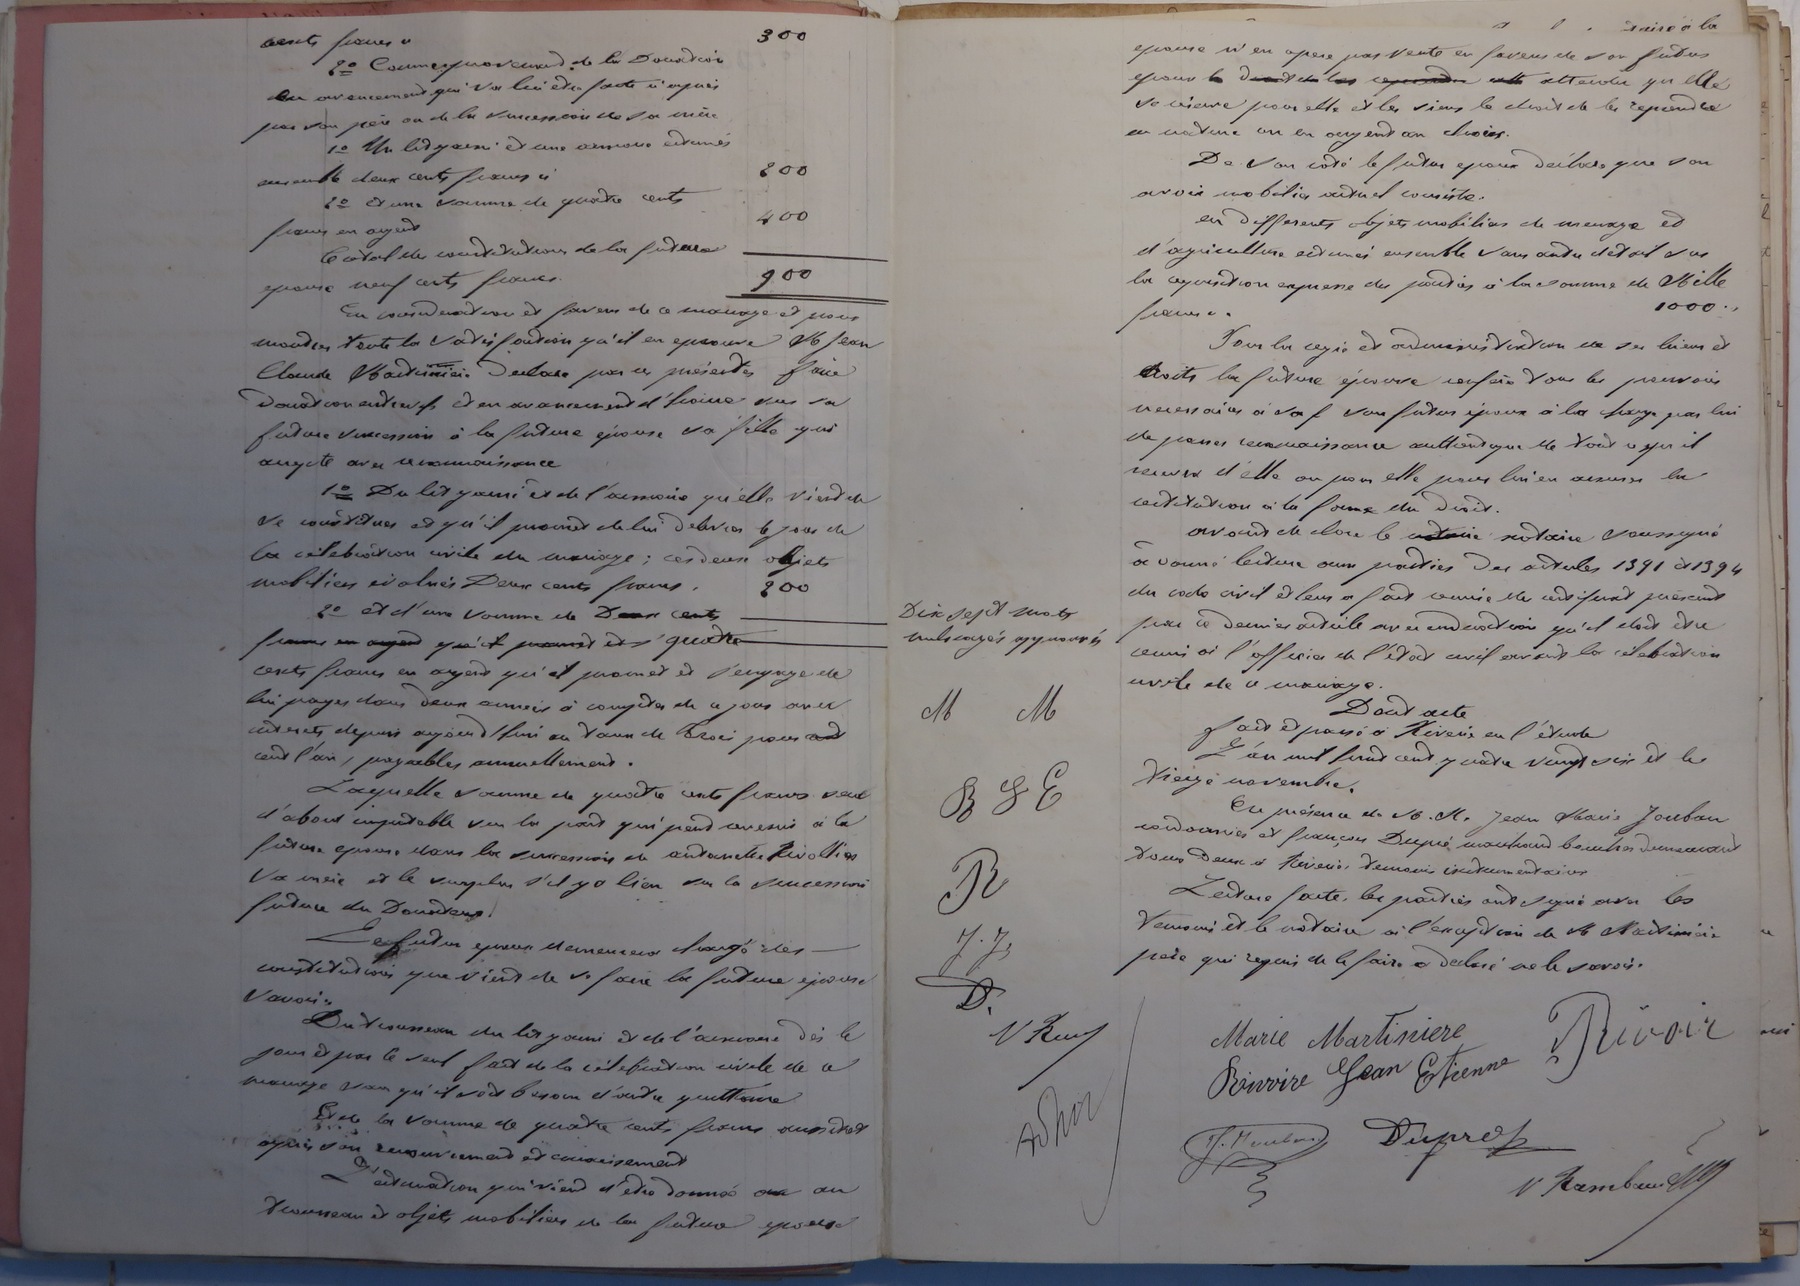 cents francs 300
2o Comme provenant de la Donation
en avancement qui va lui être faite ci après
par son père ou de la succession de sa mère
1o Un lit garni et une armoire estimés
ensemble deux cents francs ci 200
2o et une somme de quatre cents
francs en argent 400
Total des constitutions de la future
epouse neuf cents francs. 900
En consideration et faveur de ce mariage et pour
montrer toute la satisfaction qu'il en eprouve M Jean
Claude Martinière Declare par ces présentes faire
Donation entre vifs et en avancement d'hoirie sur sa
future succession à la future épouse sa fille qui
accepte avec reconnaissance
1o Du lit garni et de l'armoire qu'elle vient de
se constituer et qu'il promet de lui delivrer le jour de
la célebration civile du mariage ; ces deux objets
mobiliers évalués Deux cents francs. 200
2o et d'une somme de Deux cents
francs en argent qu'il promet et s' quatre
cents francs en argent qu'il promet et s'engage de
lui payer dans deux années à compter de ce jour avec
interets depuis aujourd'hui au taux de trois pour cent
cent l'an, payables annuellement.
Laquelle somme de quatre cents francs sera
d'abord imputable sur la part qui peut revenir à la
future epouse dans la succession de antoinette Rivollier
sa mère et le surplus s'il y a lieu sur la succession
future du Donateur.
Le futur epoux demeurera chargé des
constitutions que vient de se faire la future épouse
savoir :
Du trousseau du lit garni et de l'armoire dès le
jour et par le seul fait de la célébration civile de ce
mariage sans qu'il soit besoin d'autre quittance
Et de la somme de quatre cents francs aussitot
après son recouvrement et encaissement
L'estimation qui vient d'etre donnée aux au
trousseau et objets mobiliers de la future epouse
Dix sept mots
nuls rayés approuvés
M M
B J E
R
J. J.
D.
V Ram
epouse n'en opere pas vente en faveur de son futur
epoux le droit de les reprendre attendu qu'elle
se réserve pour elle et les siens le droit de les reprendre
en nature ou en argent au choix.
De son coté le futur epoux declare que son
avoir mobilier actuel consiste.
en differents objets mobiliers de menage et
d'agriculture estimés ensemble sans autre détail sur
la requisition expresse des parties à la somme de Mille
francs. 1000.
Pour la regie et administration de ses biens et
droits la future épouse confère tous les pouvoirs
necessaires à son futur époux à la charge par lui
de passer reconnaissance authentique de tout ce qu'il
recevra d'elle ou pour elle pour lui en assurer la
restitution à la forme du droit.
avant de clore le notaire soussigné
a donné lecture aux parties des articles 1391 et 1394
du code civil et leur a fait remise du certificat prescrit
par ce dernier article avec indication qu'il doit être
remis à l'officier de l'état civil avant la célébration
civile de ce mariage.
Dont acte
fait et passé à Riverie en l'étude
L'an mil huit cent quatre vingt six et le
treize novembre.
En présence de M. M. Jean Marie Jouban
cordonnier et françois Dupré marchand boucher demeurant
tous deux à Riverie, témoins instrumentaires
Lecture faite, les parties ont signé avec les
temoins et le notaire à l'exception de M Martinière
père qui requis de le faire a declaré ne le savoir.
Marie Martiniere
Rivoir
Bouvire Jean Etienne
Dupré
V Rambaud